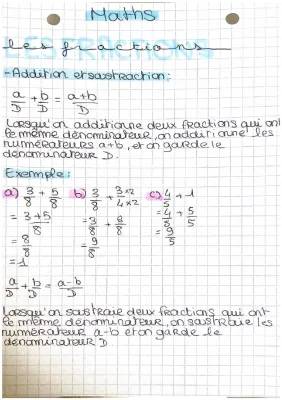 Maths
LES FRACTIONS
les fractions
-Addition et soustraction:
a/D + b/D = a+b/D
Lorsqu'on additionne deux fractions qui ont
le même dénominateur, on additionne les
numérateurs a+b, et on garde le
dénominateur D.
Exemple:
a) 3/8 + 5/8 b) 3/8 + 3×2/4×2 c) 4/5 + 1
= 3+5/8 = 3/8 + 8/8 = 4/5 + 5/5
= 8/8 = 9/8 = 9/5
= 1
a/D + b/D = a-b/D
Lorsqu'on soustraie deux fractions qui ont
le même dénominateur, on soustraie les
numérateur a-b et on garde le
dénominateur D